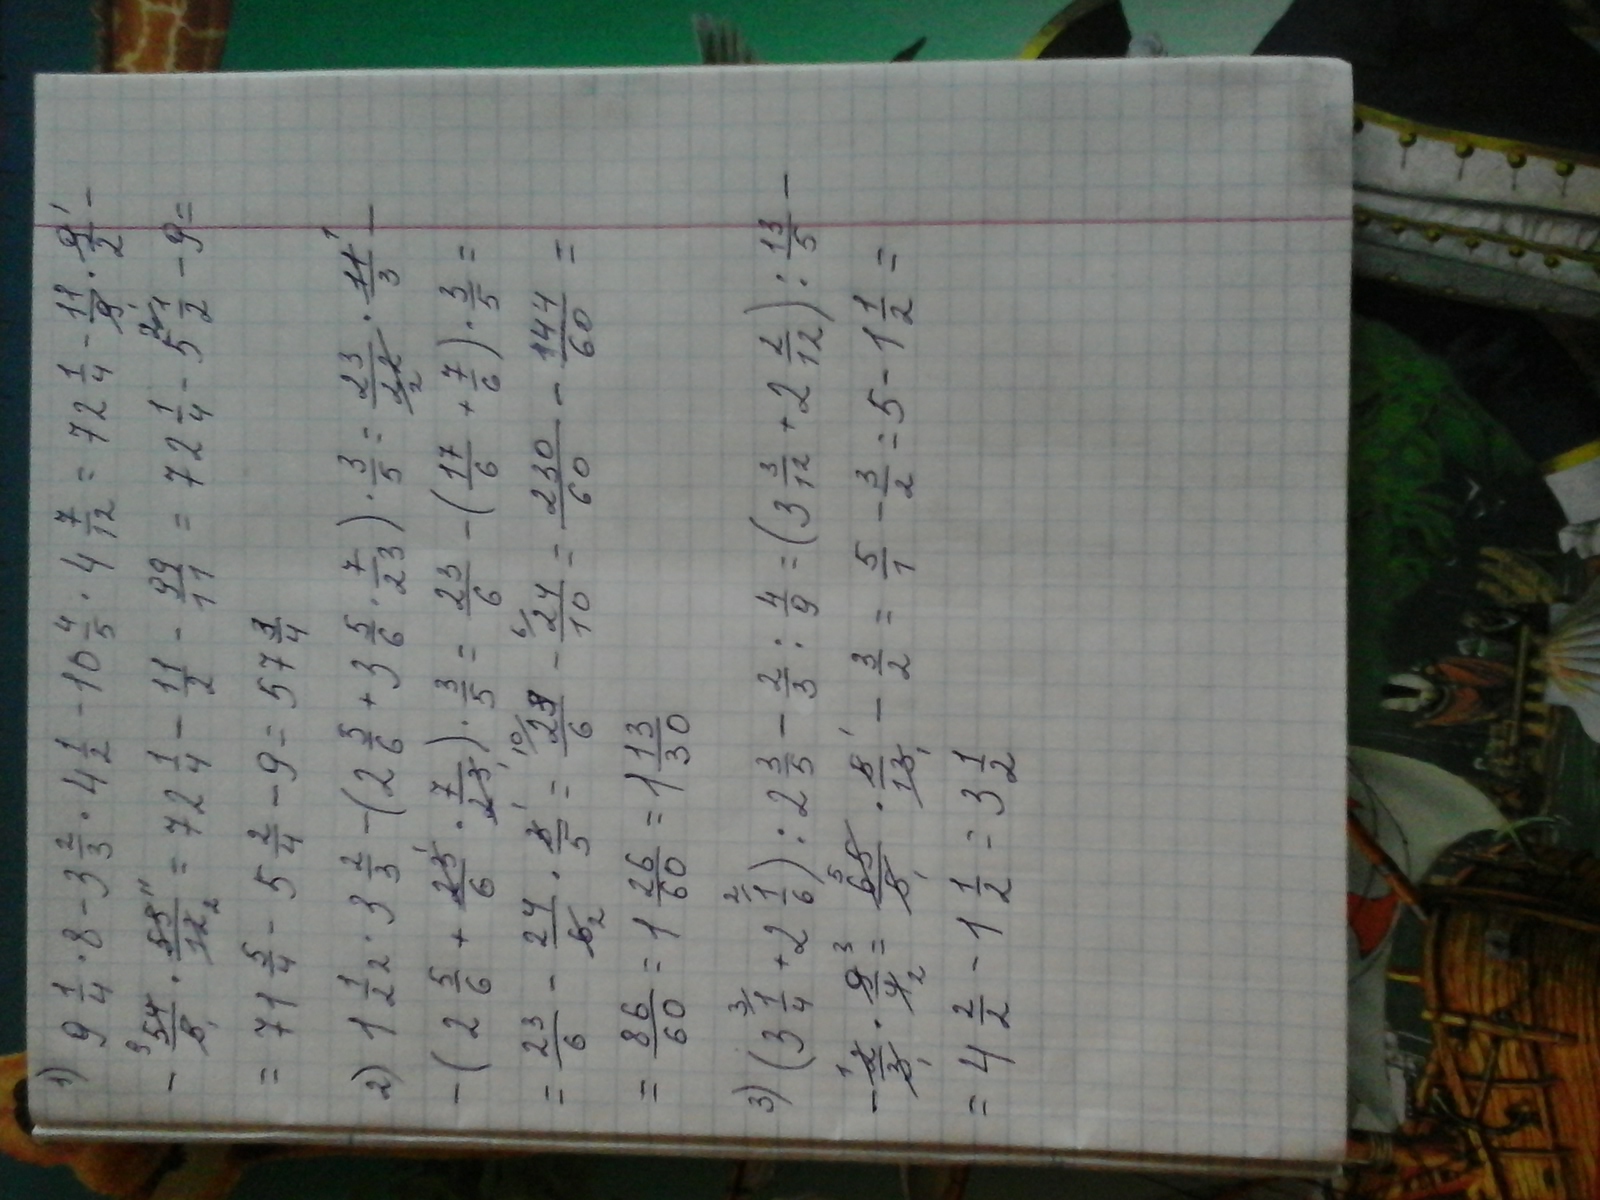 1) 9 1/4 · 8 - 3 2/3 · 4 1/2 - 10 4/5 · 4 7/12 = 72 1/4 - 11/3 · 9/2 -
- 54/5 · 55/12 = 72 1/4 - 11/2 - 99/11 = 72 1/4 - 5 1/2 - 9 =
= 71 5/4 - 5 2/4 - 9 = 57 3/4
2) 1 1/22 · 3 2/3 - (2 5/6 + 3 5/6 · 7/23) · 3/5 = 23/22 · 11/3 -
- (2 5/6 + 23/6 · 7/23) · 3/5 = 23/6 - (17/6 + 7/6) · 3/5 =
= 23/6 - 24/6 · 3/5 = 23/6 - 24/10 = 230/60 - 144/60 =
= 86/60 = 1 26/60 = 1 13/30
3) (3 1/4 + 2 1/6) : 2 3/5 - 2/3 : 4/9 = (3 3/12 + 2 2/12) : 13/5 -
- 2/3 · 9/4 = 65/5 · 5/13 - 3/2 = 5/1 - 3/2 = 5 - 1 1/2 =
= 4 2/2 - 1 1/2 = 3 1/2